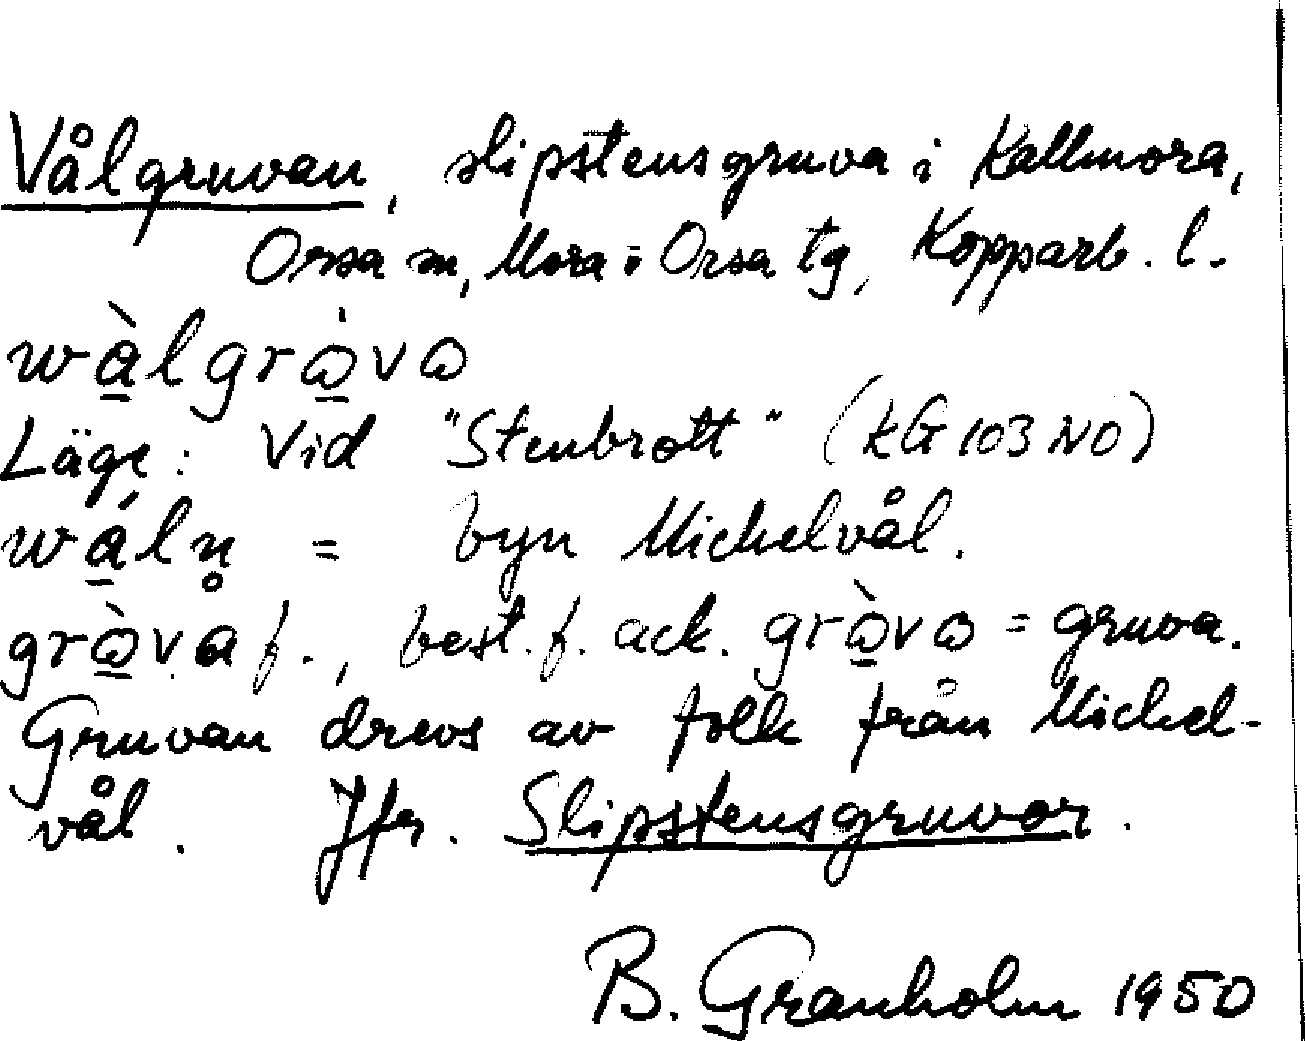 Vålgruvan, slipstensgruva i Kallmora,
Orsa sn, Mora o Orsa tg, Kopparb. l.
wà̱lgrɷ̱̀vɷ
Läge: Vid "Stenbrott" (KG 103 NO)
wá̱ln̥ = byn Mickelvål.
grɷ̱̀va f., best. f. ack. grɷ̱̀vɷ = gruva.
Gruvan drevs av folk från Mickel-
vål. Jfr. Slipstensgruvor.
B. Granholm 1950